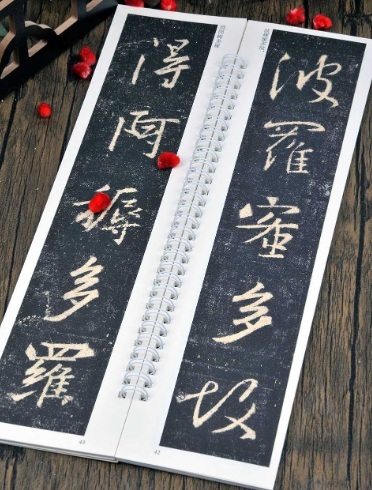 波羅蜜多故
42
得阿耨多羅
43